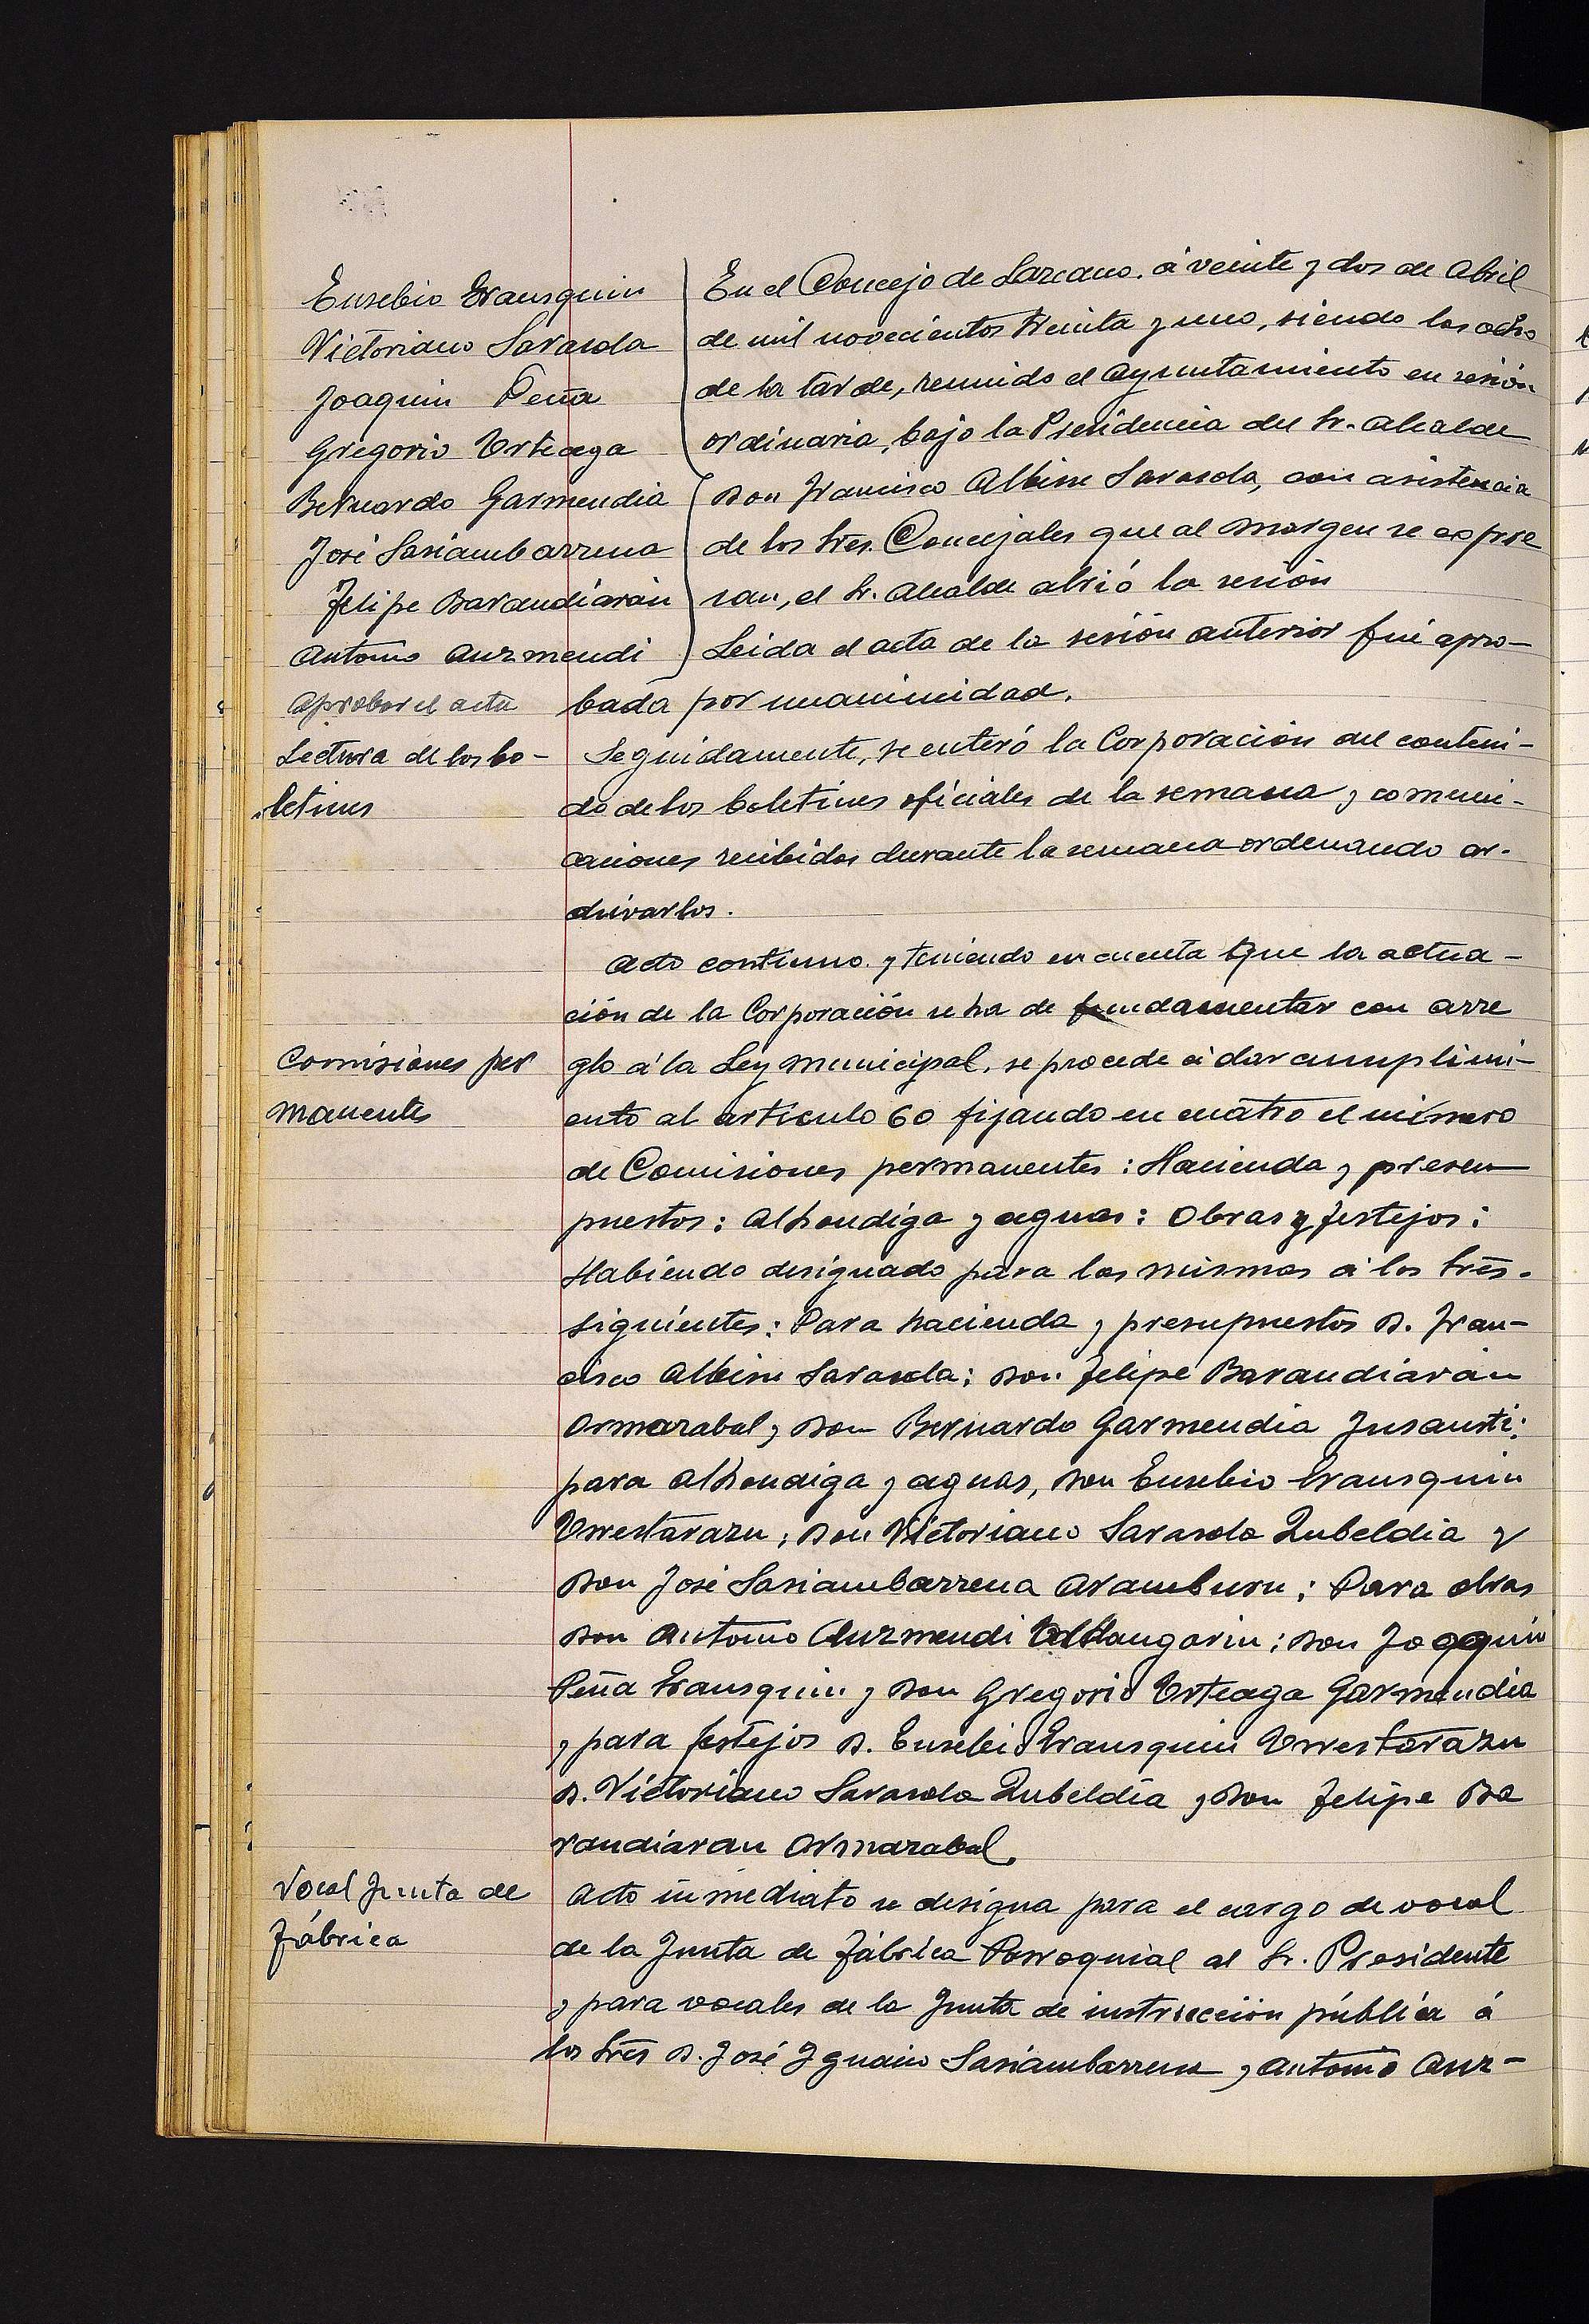 Eusebio Irausquin
Victoriano Sarasola
Joaquin Peña
Gregorio Urteaga
Bernardo Garmendia
José Sasiambarrena
Felipe Barandiarán
Antonio Auzmendi
En el Concejo de Lazcano. á veinte y dos de Abril
de mil novecientos treinta y uno, siendo las ocho
de la tarde, reunido el Ayuntamiento en sesión
ordinaria, bajo la Presidencia del Sr. Alcalde
Don Francisco Albisu Sarasola, con asistencia
de los Sres. Concejales que al margen se expre
san, el Sr. Alcalde abrió la sesión
Leida el acta de la sesión anterior fué apro-
Aprobar el acta
bada por unanimidad.
Lectura de los bo-
letines
Seguidamente, se enteró la Corporación del conteni-
do de los boletines oficiales de la semana y comuni-
caciones recibidas durante la semana ordenando ar-
chivarlos.
Acto continuo y teniendo en cuenta que la actua-
ción de la Corporación se ha de fundamentar con arre
Comisiones per
manentes
glo á la Ley Municipal, se procede á dar cumplimi-
ento al artículo 60 fijando en cuatro el número
de Comisiones permanentes: Hacienda y presu
puestos: Alhondiga y aguas: Obras y festejos:
Habiendo designado para las mismas á los Sres.
siguientes: Para hacienda y presupuestos D. Fran-
cisco Albisu Sarasola; Don Felipe Barandiarán
Ormazabal y Don Bernardo Garmendia Insausti;
para alhondiga y aguas, Don Eusebio Irausquin
Urrestarazu; Don Victoriano Sarasola Zubeldia y
Don José Sasiambarrena Aramburu; Para obras
Don Antonio Auzmendi; Don Joaquin
Peña Irausquin y Don Gregorio Urteaga Garmendia
y para festejos D. Eusebio Irausquin Urrestarazu
D. Victoriano Sarasola Zubeldia y Don Felipe Ba
randiaran Ormazabal.
Vocal Junta de
Fábrica
Acto inmediato se designa para el cargo de vocal
de la Junta de Fábrica Parroquial al Sr. Presidente
y para vocales de la Junta de instrucción pública á
los Sres D. José Ignacio Sasiambarrena y Antonio Auz-